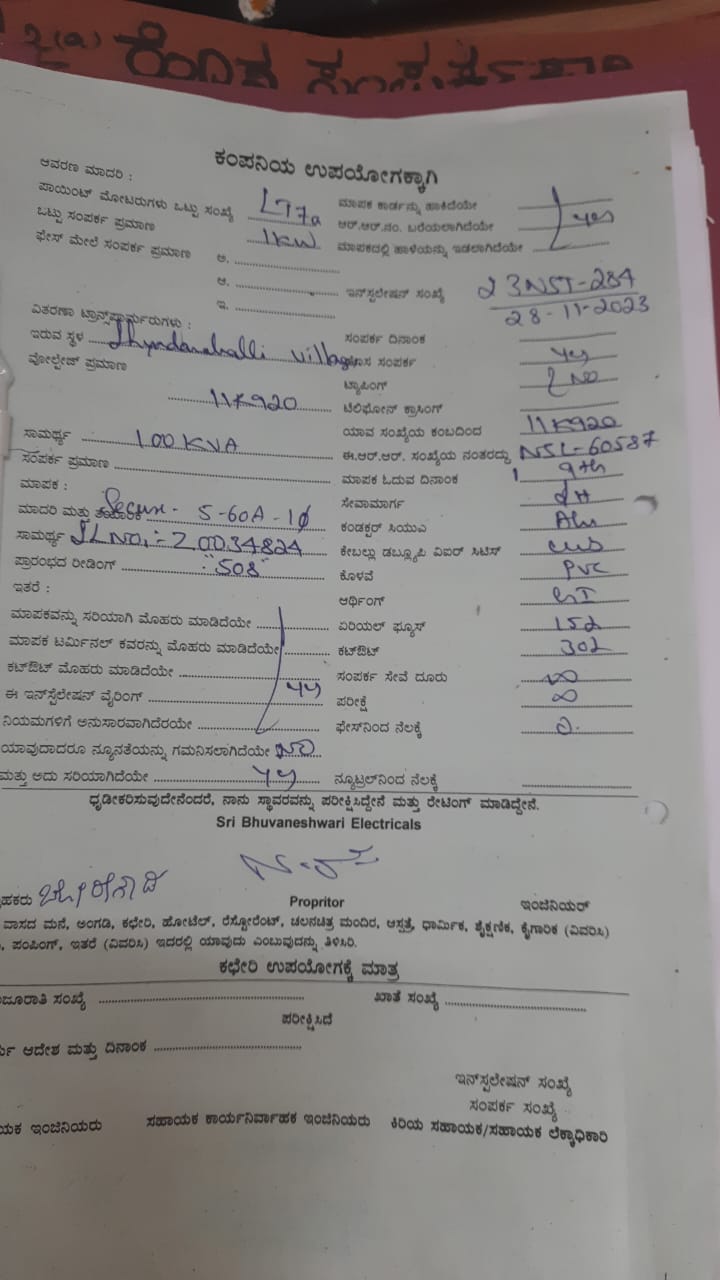 2(a)
ಕಂಪನಿಯ ಉಪಯೋಗಕ್ಕಾಗಿ
ಆವರಣ ಮಾದರಿ :
ಪಾಯಿಂಟ್ ಮೋಟರುಗಳು ಒಟ್ಟು ಸಂಖ್ಯೆ LT7a ಮಾಪಕ ಕಾರ್ಡನ್ನು ಹಾಕಿದೆಯೇ
ಒಟ್ಟು ಸಂಪರ್ಕ ಪ್ರಮಾಣ 1KW ಆರ್.ಆರ್.ನಂ. ಬರೆಯಲಾಗಿದೆಯೇ yes
ಫೇಸ್ ಮೇಲೆ ಸಂಪರ್ಕ ಪ್ರಮಾಣ ಅ. ಮಾಪಕದಲ್ಲಿ ಹಾಳೆಯನ್ನು ಇಡಲಾಗಿದೆಯೇ
ಆ. ಇನ್‌ಸ್ಟಲೇಷನ್ ಸಂಖ್ಯೆ 23NST-284
ಇ. 28-11-2023
ವಿತರಣಾ ಟ್ರಾನ್ಸ್‌ಫಾರ್ಮರುಗಳು :
ಸಂಪರ್ಕ ದಿನಾಂಕ
ಇರುವ ಸ್ಥಳ village ಸಂಪರ್ಕ yes
ವೋಲ್ಟೇಜ್ ಪ್ರಮಾಣ ಟ್ಯಾಪಿಂಗ್ NO
11K920 ಟೆಲಿಫೋನ್ ಕ್ರಾಸಿಂಗ್
ಯಾವ ಸಂಖ್ಯೆಯ ಕಂಬದಿಂದ 11K920
ಸಾಮರ್ಥ್ಯ 100 KVA ಈ.ಆರ್.ಆರ್. ಸಂಖ್ಯೆಯ ನಂತರದ್ದು NSL-60587
ಸಂಪರ್ಕ ಪ್ರಮಾಣ ಮಾಪಕ ಓದುವ ದಿನಾಂಕ 9th
ಮಾಪಕ : ಸೇವಾಮಾರ್ಗ
ಮಾದರಿ ಮತ್ತು ತಯಾರಿಕೆ Secure - 5-60A-1φ ಕಂಡಕ್ಟರ್ ಸಿಯುವಿ Alu
ಸಾಮರ್ಥ್ಯ SLNO:- Z0034824 ಕೇಬಲ್ಲು ಡಬ್ಲ್ಯೂಪಿ ವಿಐರ್ ಸಿಟಿಸ್
ಪ್ರಾರಂಭದ ರೀಡಿಂಗ್ :"508" ಕೊಳವೆ PVC
ಇತರೆ : ಆರ್ಥಿಂಗ್ GI
ಮಾಪಕವನ್ನು ಸರಿಯಾಗಿ ಮೊಹರು ಮಾಡಿದೆಯೇ ಏರಿಯಲ್ ಫ್ಯೂಸ್
ಮಾಪಕ ಟರ್ಮಿನಲ್ ಕವರನ್ನು ಮೊಹರು ಮಾಡಿದೆಯೇ ಕಟ್‌ಔಟ್
ಕಟ್‌ಔಟ್ ಮೊಹರು ಮಾಡಿದೆಯೇ ಸಂಪರ್ಕ ಸೇವೆ ದೂರು ∞
ಈ ಇನ್‌ಸ್ಟಲೇಷನ್ ವೈರಿಂಗ್ ಪರೀಕ್ಷೆ ∞
ನಿಯಮಗಳಿಗೆ ಅನುಸಾರವಾಗಿದೆರಯೇ ಫೇಸ್‌ನಿಂದ ನೆಲಕ್ಕೆ
ಯಾವುದಾದರೂ ನ್ಯೂನತೆಯನ್ನು ಗಮನಿಸಲಾಗಿದೆಯೇ NO
ಮತ್ತು ಅದು ಸರಿಯಾಗಿದೆಯೇ ನ್ಯೂಟ್ರಲ್‌ನಿಂದ ನೆಲಕ್ಕೆ
ಧೃಡೀಕರಿಸುವುದೇನೆಂದರೆ, ನಾನು ಸ್ಥಾವರವನ್ನು ಪರೀಕ್ಷಿಸಿದ್ದೇನೆ ಮತ್ತು ರೇಟಿಂಗ್ ಮಾಡಿದ್ದೇನೆ.
Sri Bhuvaneshwari Electricals
Propritor ಇಂಜಿನಿಯರ್
ವಾಸದ ಮನೆ, ಅಂಗಡಿ, ಕಛೇರಿ, ಹೋಟೆಲ್, ರೆಸ್ಟೋರೆಂಟ್, ಚಲನಚಿತ್ರ ಮಂದಿರ, ಆಸ್ಪತ್ರೆ, ಧಾರ್ಮಿಕ, ಶೈಕ್ಷಣಿಕ, ಕೈಗಾರಿಕ (ವಿವರಿಸಿ)
ಪಂಪಿಂಗ್, ಇತರೆ (ವಿವರಿಸಿ) ಇದರಲ್ಲಿ ಯಾವುದು ಎಂಬುವುದನ್ನು ತಿಳಿಸಿರಿ.
ಕಛೇರಿ ಉಪಯೋಗಕ್ಕೆ ಮಾತ್ರ
ಸಂಖ್ಯೆ ಖಾತೆ ಸಂಖ್ಯೆ
ಪರೀಕ್ಷಿಸಿದೆ
ಆದೇಶ ಮತ್ತು ದಿನಾಂಕ
ಇನ್‌ಸ್ಟಲೇಷನ್ ಸಂಖ್ಯೆ
ಸಂಪರ್ಕ ಸಂಖ್ಯೆ
ಇಂಜಿನಿಯರು ಸಹಾಯಕ ಕಾರ್ಯನಿರ್ವಾಹಕ ಇಂಜಿನಿಯರು ಕಿರಿಯ ಸಹಾಯಕ/ಸಹಾಯಕ ಲೆಕ್ಕಾಧಿಕಾರಿ